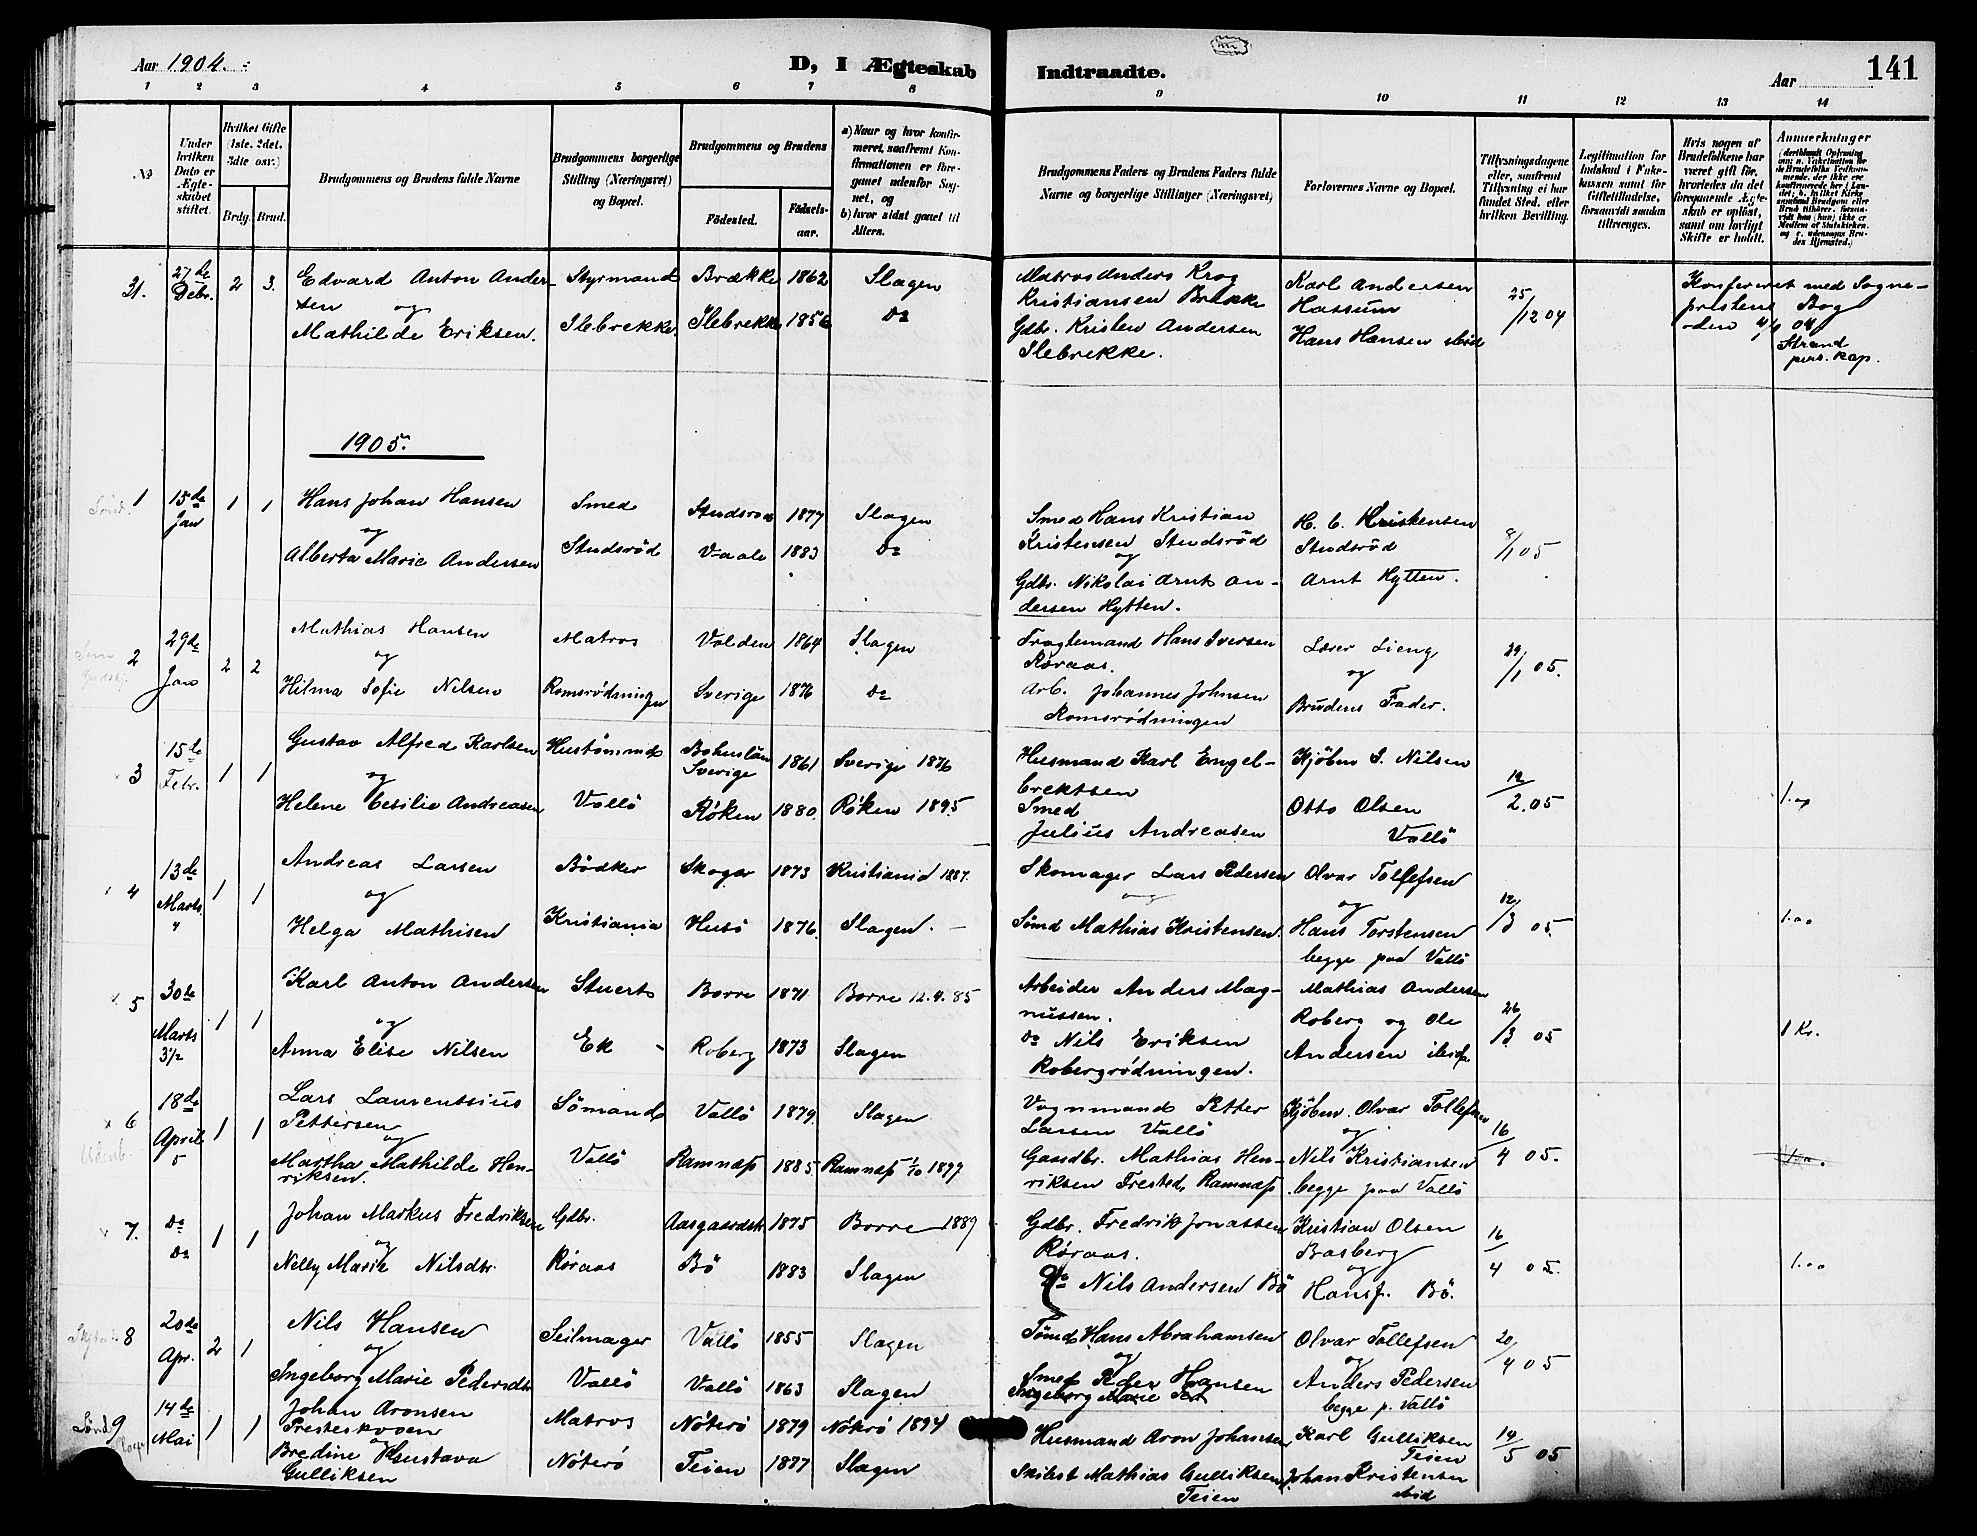 Aar 1904.
D, I Ægteskab
Indtraadte.
Aar
141
1 2 3 4 5 6 7 8 9 10 11 12 13 14
No
Under hvilken Dato er Ægteskabet stiftet.
Hvilket Gifte (1ste, 2det, 3die osv.)
Brdg. Brud.
Brudgommens og Brudens fulde Navne
Brudgommens borgerlige Stilling (Næringsvei) og Bopæl.
Brudgommens og Brudens
Fødested.
Fødsels-aar.
a) Naar og hvor konfirmeret, saafremt Konfirmationen er foregaaet udenfor Sognet, og
b) hvor sidst gaaet til Alters.
Brudgommens Faders og Brudens Faders fulde Navne og borgerlige Stillinger (Næringsvei)
Forlovernes Navne og Bopæl.
Tillysningsdagene eller, saafremt Tillysning ei har fundet Sted, efter hvilken Bevilling.
Legitimation for Indskud i Enkekassen samt for Giftetilladelse, forsaavidt saadan tiltrænges.
Hvis nogen af Brudefolkene har været gift før, hvorledes da det foregaaende Ægteskab er opløst, samt om lovligt Skifte er holdt.
Anmærkninger
31. 27de Debr. 2 3.
Edvard Anton Andersen
og
Mathilde Eriksen.
Styrmand
Ilebrekke.
Brække 1862 Slagen
Ilebrekke 1856 do
Matros Anders Krog
Kristiansen Brække
Gdbr. Kristen Andersen
Ilebrekke.
Karl Andersen
Hassum
Hans Hansen ibid
25/12 04
Konfereret med Sogne-
prestens Bog
den 4/4 04
Strand
pers. kap.
1905.
1 15de Jan 1 1
Hans Johan Hansen
og
Alberta Marie Andersen
Smed
Studsrød
Studsrød 1877 Slagen
Vaale 1883 do
Smed Hans Kristian
Kristensen Studsrød
og
Gdbr. Nikolai Arnt An-
dersen Hytten.
H. C. Kristensen
Studsrød
Arnt Hytten.
8/1 05
2 29de Jan 2 2
Mathias Hansen
og
Hilma Sofie Nilsen
Matros
Romsrødningen
Volden 1864 Slagen
Sverige 1876 do
Fragtemand Hans Iversen
Røraas.
Arb. Johannes Johnsen
Romsrødningen
Lærer Lieng
og
Brudens Fader.
29/1 05.
3 15de Febr. 1 1
Gustav Alfred Karlsen
og
Helene Cesilie Andreasen
Hustømmd
Vallö
Bohuslän Sverige 1861 Sverige 1876
Røken 1880. Røken 1895.
Husmand Karl Engel-
brektsen
Smed
Julius Andreasen
Kjøbm S. Nilsen
Otto Olsen
Vallö
12/2.05
1.00
4 13de Marts 1 1
Andreas Larsen
og
Helga Mathisen
Bødker
Kristiania
Skoger 1873 Kristiania 1887.
Husö 1876. Slagen.
Skomager Lars Pedersen
og
Sömd Mathias Kristensen.
Olvar Tollefsen
og
Hans Torstensen
begge paa Vallö
12/3 05.
1.00
5 30te Marts 3 1/2 1 1
Karl Anton Andersen
og
Anna Elise Nilsen
Stuert
Ek
Borre 1871 Borre 12.4.85
Roberg 1873 Slagen
Arbeider Anders Mag-
nussen.
do Nils Eriksen
Robergrødningen.
Mathias Andersen
Roberg og Ole
Andersen ibid.
26/3 05
1 Kr.
6 18de April 5 1 1
Lars Laurentsius
Pettersen
og
Martha Mathilde Hen-
riksen.
Sömand
Vallö
Vallö 1879. Slagen
Ramnæs 1885 Ramnæs 1/10 1899
Vognmand Petter
Larsen Vallö
Gaardbr. Mathias Hen-
riksen Frested, Ramnæs
Kjøbm. Olvar Tollefsen
og
Nils Kristiansen
begge paa Vallö
16/4 05.
7. do do 1 1
Johan Markus Fredriksen
og
Nelly Marie Nilsdtr.
Gdbr.
Røraas
Aasgaardstr. 1875 Borre 1889
Bö 1883 Slagen
Gdbr. Fredrik Jonassen
Røraas.
do Nils Andersen Bö
Kristian Olsen
Basberg
og
Hans J. Bö.
16/4 05.
1.00
8 20de Apr. 2 1
Nils Hansen
og
Ingeborg Marie Pedersdtr
Seilmager
Vallö
Vallö 1855 Slagen
Vallö 1863 Slagen
Tømd Hans Abrahamsen
og
Smed Peder Hansen
Ingeborg Marie Ped
Olvar Tollefsen
og
Anders Pedersen
begge p. Vallö
20/4 05
Sönd 9 14de Mai 1 1
Johan Aronsen
Presteskogen
og
Bredine Gustava
Gulliksen
Matros
Nöterö
Nöterö 1879 Nöterö 1894
Teien 1887 Slagen
Husmand Aron Johansen
Skibst Mathias Gulliksen
Teien
Karl Gulliksen
Teien
Johan Kristensen
ibid
14/5 05